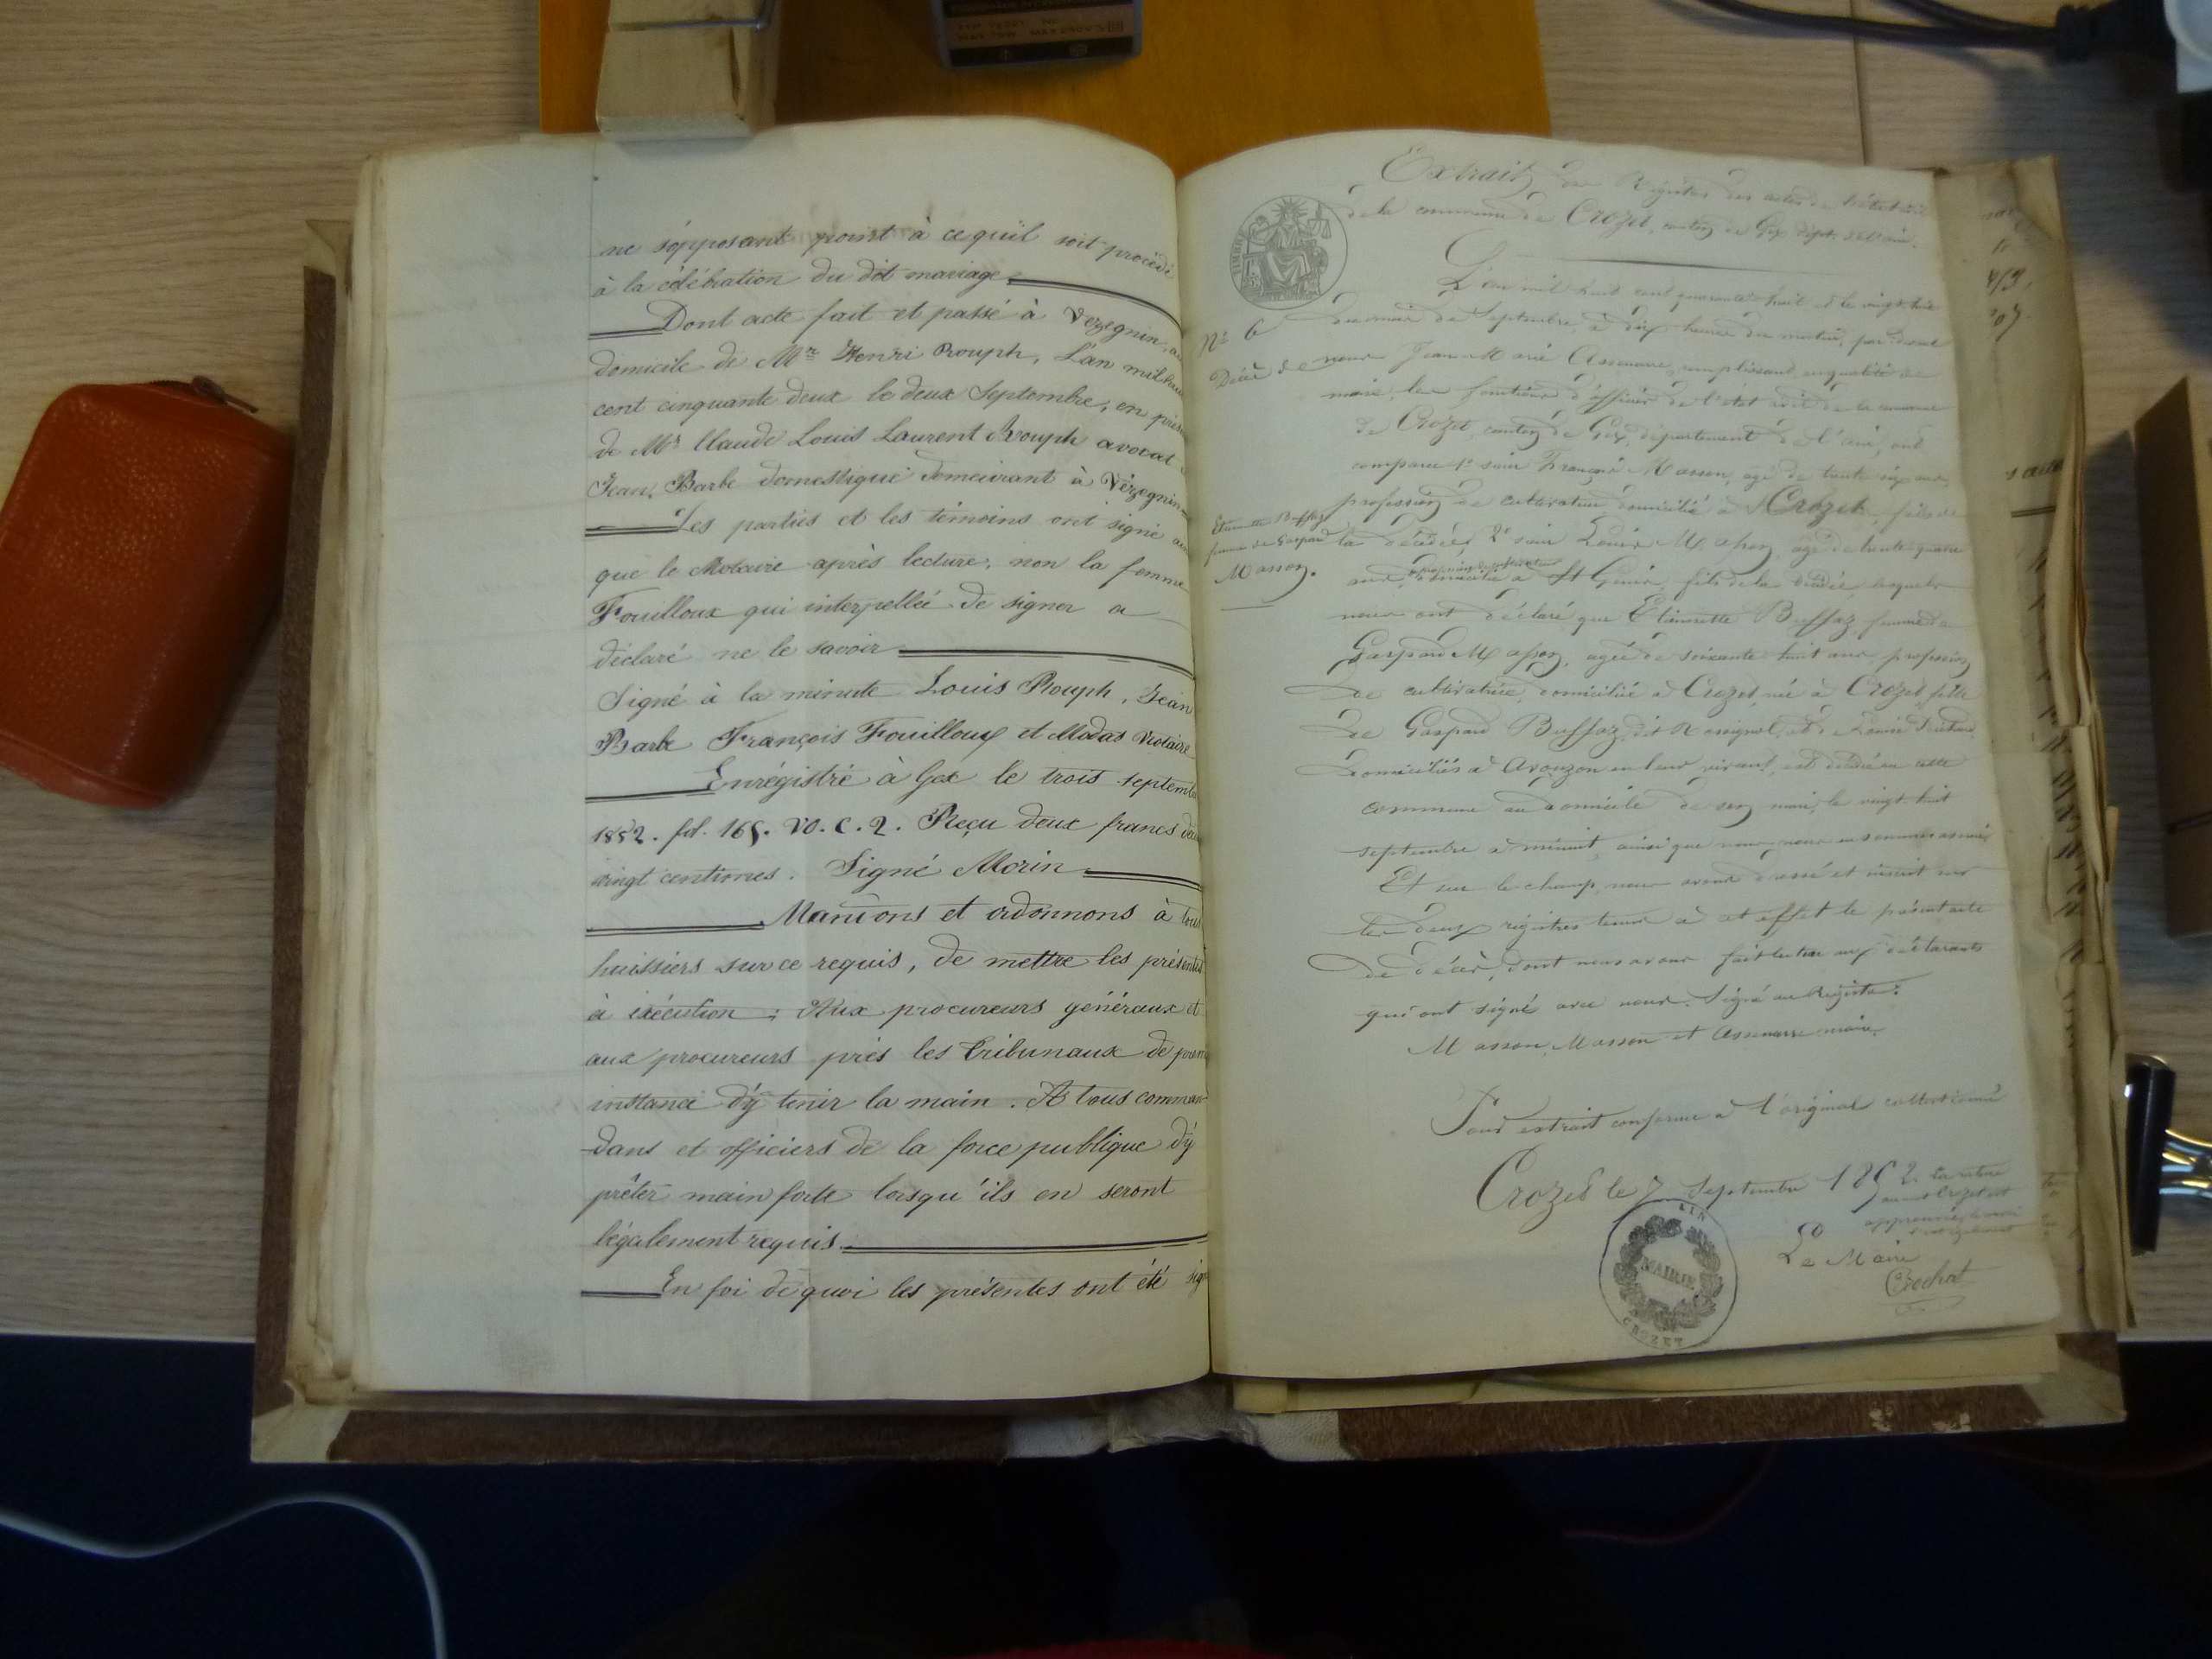 ne s'opposant point à ce qu'il soit procédé
à la célébration du dit mariage
Dont acte fait et passé à Vézegnin,
domicile de Mr Henri Rouph, L'an mil huit
cent cinquante deux le deux Septembre, en
de Mr Claude Louis Laurent Rouph avocat
Jean Barbe domestique demeurant à Vézegnin
Les parties et les témoins ont signé
que le Notaire après lecture, non la femme
Fouilloux qui interpellée de signer a
déclaré ne le savoir
Signé à la minute Louis Rouph, Jean
Barbe François Fouilloux et Modas Notaire
Enrégistré à Gex le trois septembre
1852. fol. 165. VO. C. 2. Reçu deux francs
vingt centimes. Signé Morin
Mandons et ordonnons à tous
huissiers sur ce requis, de mettre les présentes
à exécution ; Aux procureurs généraux et
aux procureurs près les tribunaux de
instance d'y tenir la main. A tous comman-
dans et officiers de la force publique d'y
prêter main forte lorsqu'ils en seront
légalement requis.
En foi de quoi les présentes ont été
Extrait des Régistres des actes de l'état civil
de la commune de Crozet, canton de Gex, dépt. de l'Ain.
TIMBRE
L'an mil huit cent quarante huit et le vingt huit
No 6
du mois de Septembre, à dix heures du matin, par devant
Décès de
nous Jean Marie Assenare, remplissant en qualité de
maire, les fonctions d'officier de l'état civil de la commune
de Crozet, canton de Gex, département de l'ain, ont
comparu 1° sieur François Masson, agé de trente six ans,
profession de cultivateur domicilié à Crozet, fils de
Etiennette Buffaz
femme de Gaspard
Masson.
la décédée, 2° sieur Louis Masson, agé de trente quatre
ans, domicilié à St Genis, fils de la décédée, lesquels
nous ont déclaré que Etiennette Buffaz femme de
Gaspard Masson, agée de soixante huit ans, profession
de cultivatrice, domiciliée à Crozet, née à Crozet, fille
de Gaspard Buffaz, dit Rossignol, et de Louise
domiciliés à Avouzon en leur vivant, est décédée en cette
commune au domicile de son mari, le vingt huit
septembre à minuit, ainsi que nous nous en sommes assurés
Et sur le champ, nous avons dressé et inscrit sur
les deux régistres tenus à cet effet le présent acte
de décès, dont nous avons fait lecture aux déclarants
qui ont signé avec nous. Signé au Régistre:
Masson, Masson et Assenare maire.
Pour extrait conforme à l'original collationné
Crozet le 7 Septembre 1852.
Le Maire
Crochat
AIN
MAIRIE
CROZET